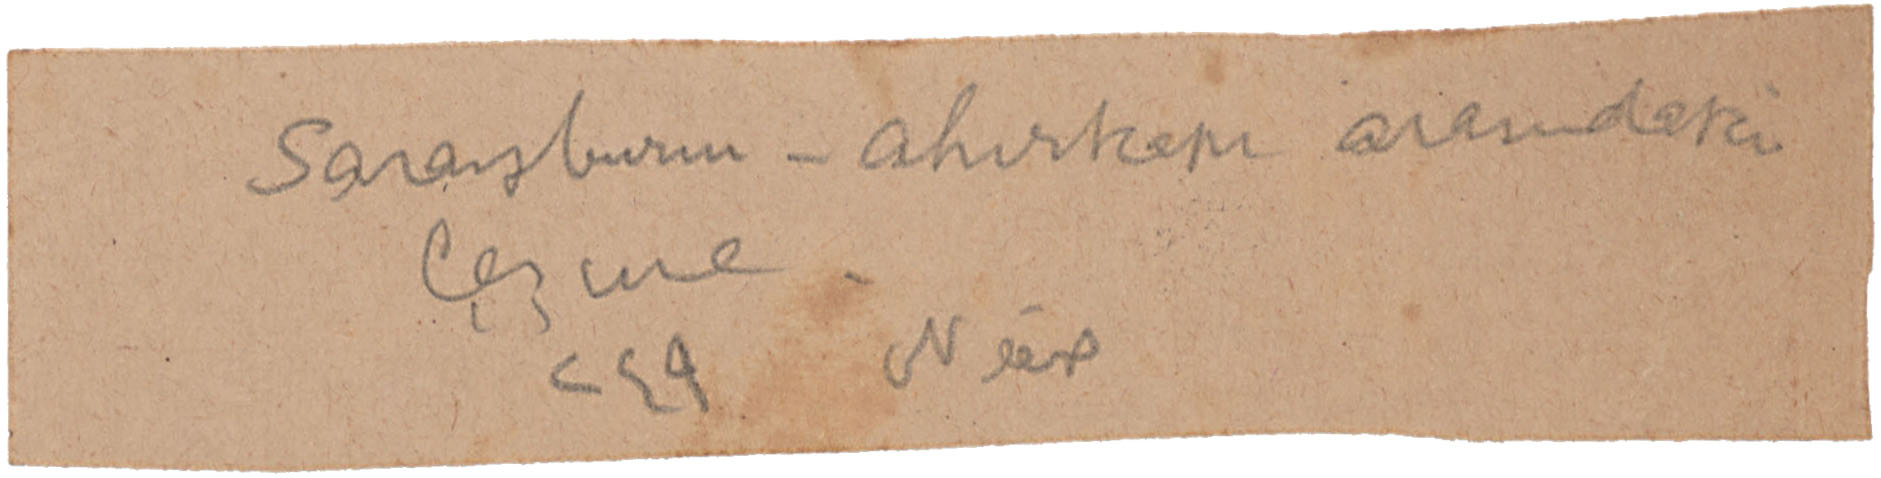 Sarayburnu - Ahırkapı arasındaki
Çeşme.